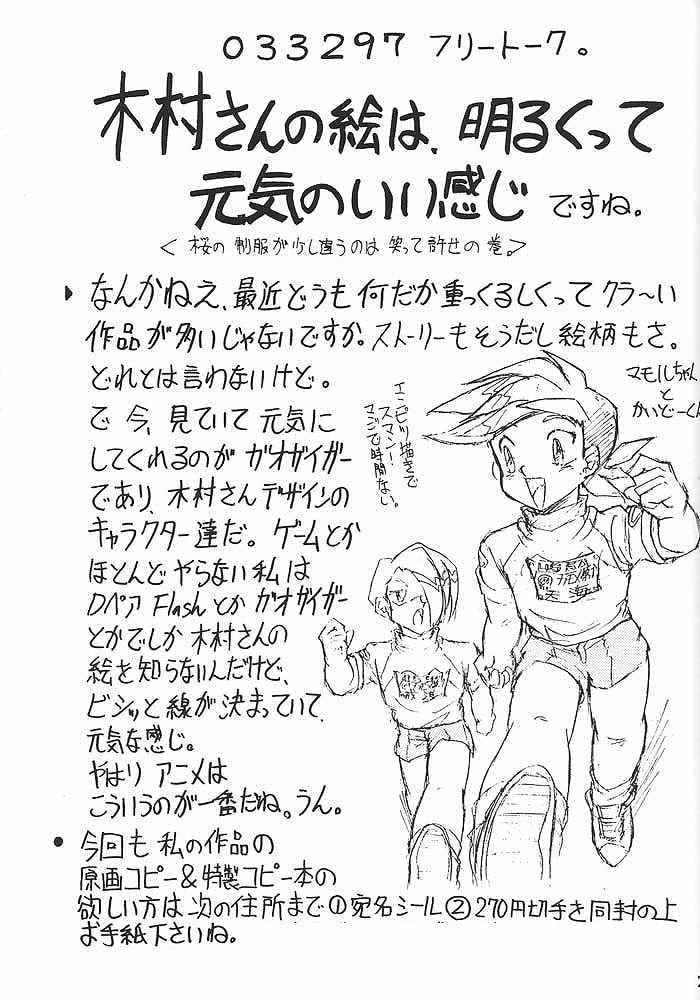 033297 フリートーク。
木村さんの絵は、明るくって
元気のいい感じ ですね。
＜ 桜の 制服が少し違うのは 笑って許せの巻。＞
なんかねえ、最近どうも何だか重っくるしくってクラ〜い
作品が多いじゃないですか。ストーリーもそうだし絵柄もさ。
どれとは言わないけど。
で今、見ていて元気に
してくれるのがガオガイガー
であり、木村さんデザインの
キャラクター達だ。ゲームとか
ほとんどやらない私は
Dペア Flashとかガオガイガー
とかでしか木村さんの
絵を知らないんだけど、
ビシッと線が決まっていて
元気な感じ。
やはりアニメは
こういうのが一番だね。うん。
マモルちゃん
と
かいどーくん
エンピツ描きで
スマン！
マジで時間ない。
● 今回も私の作品の
原画コピー＆特製コピー本の
欲しい方は次の住所まで①宛名シール②270円切手を同封の上
お手紙下さいね。